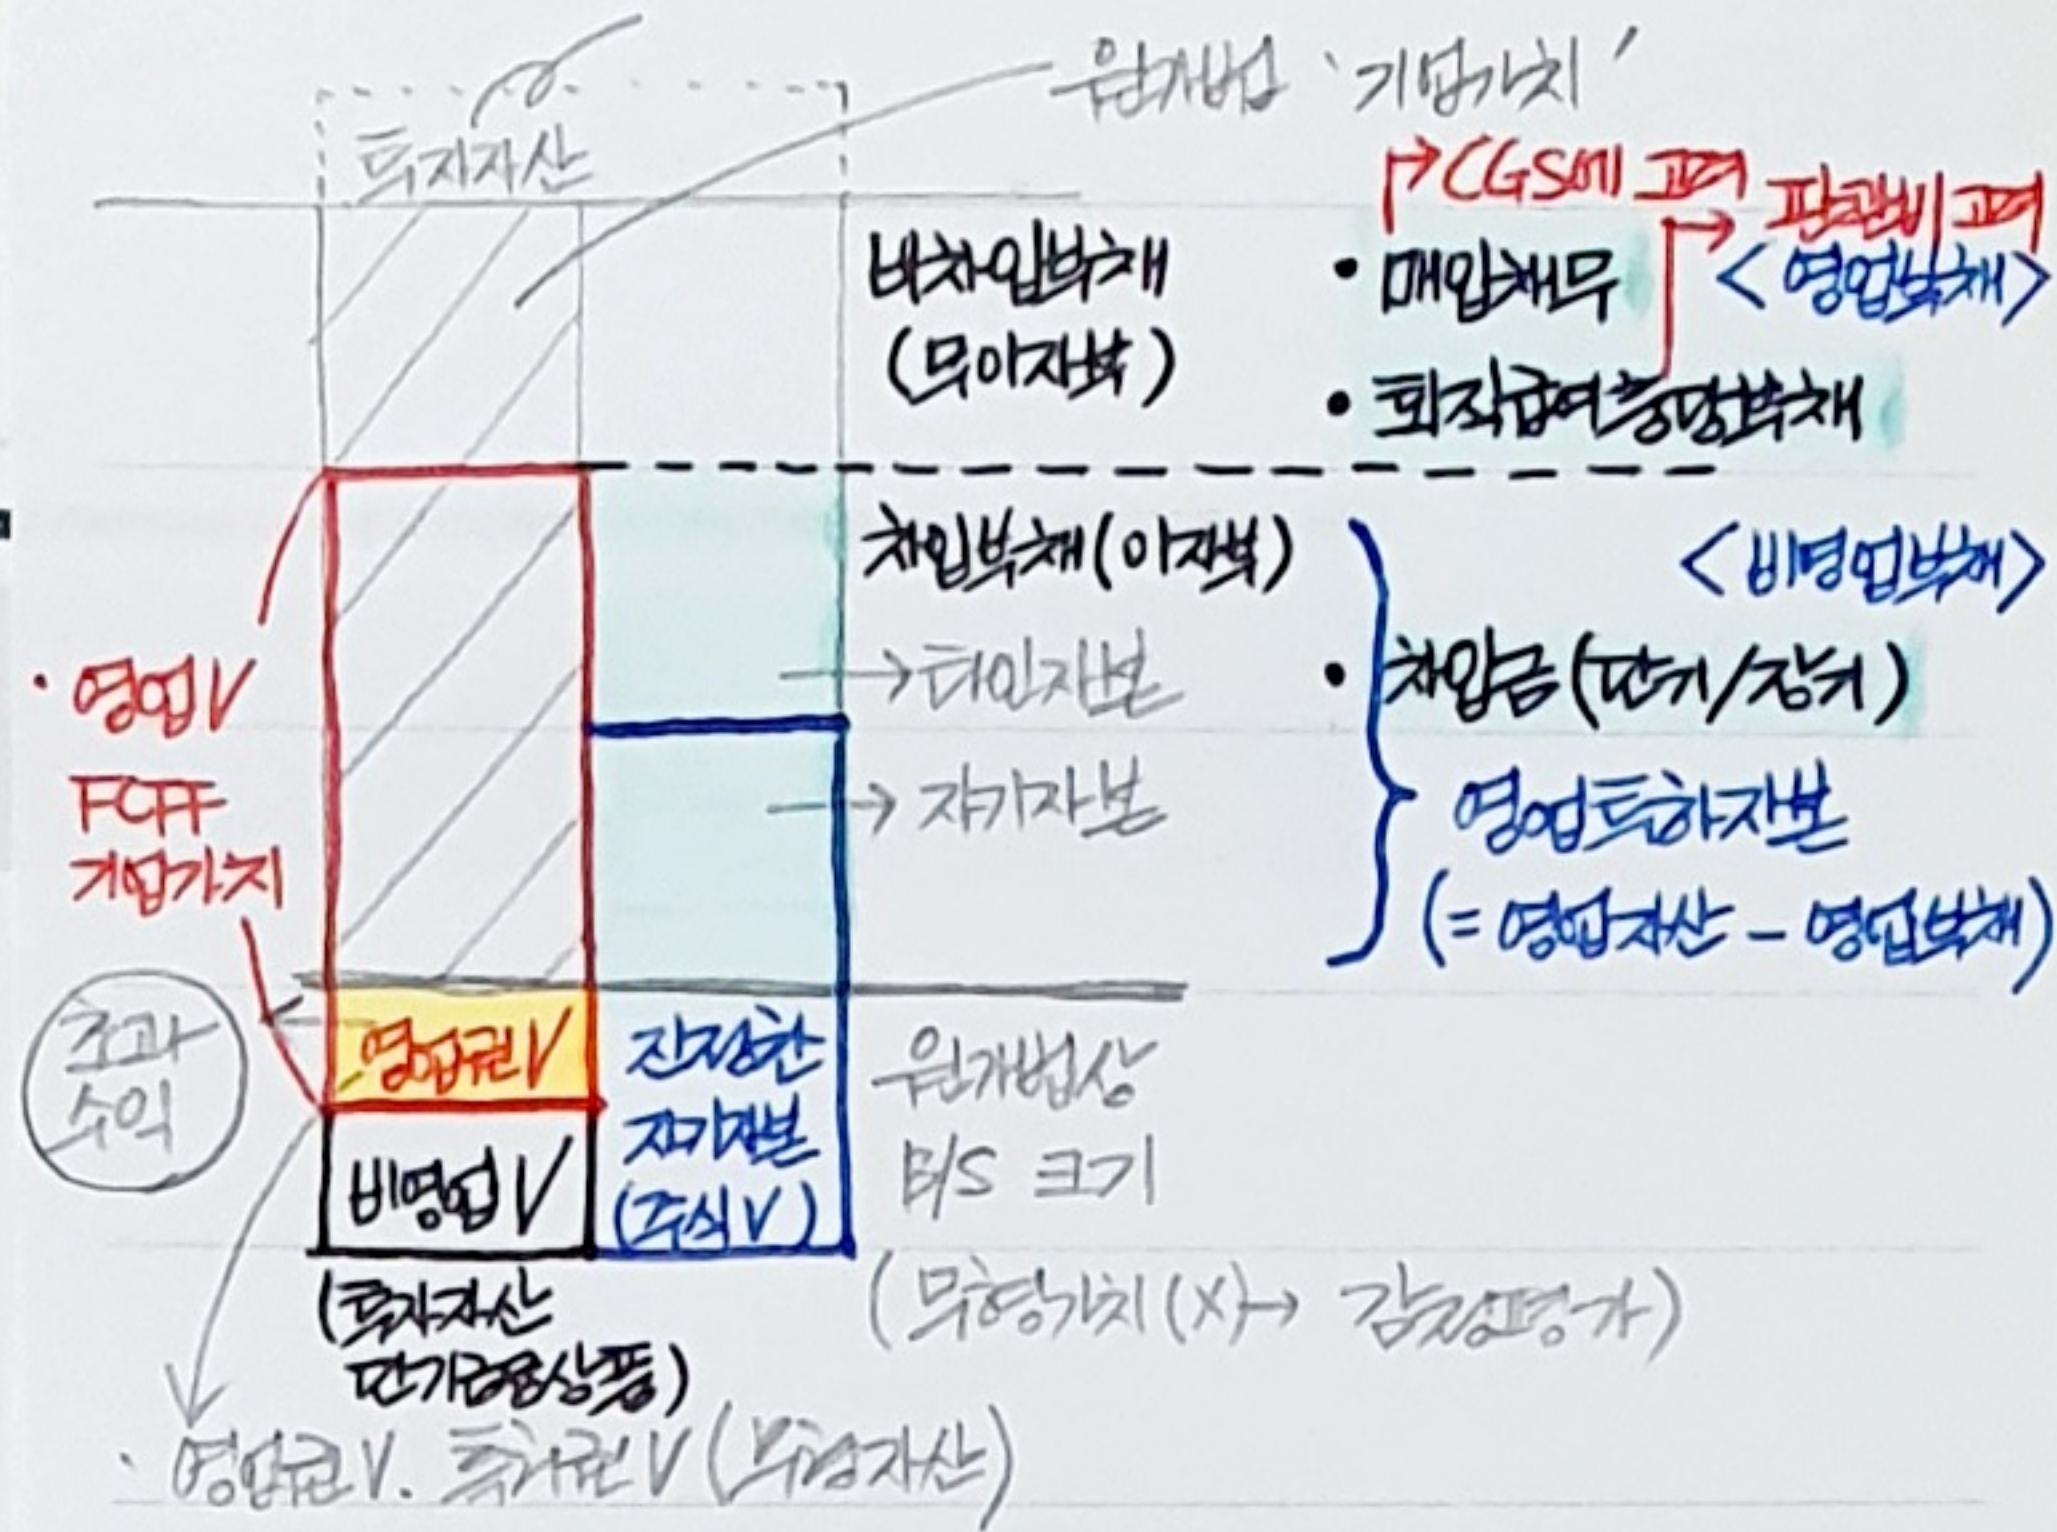 원가법 '기업가치'
투자자산
→CGS에 고려
→ 판관비 고려
비차입부채
(무이자부)
• 매입채무
<영업부채>
• 퇴직급여충당부채
차입부채(이자부)
<비영업부채>
→타인자본
• 차입금(단기/장기)
• 영업V
FCFF
기업가치
→ 자기자본
영업투하자본
(= 영업자산 - 영업부채)
초과
수익
영업권V
진정한
자기자본
(주식V)
원가법상
B/S 크기
비영업V
(투자자산
단기금융상품)
(무형가치(X)→ 감정평가)
· 영업권V. 특허권V (무형자산)